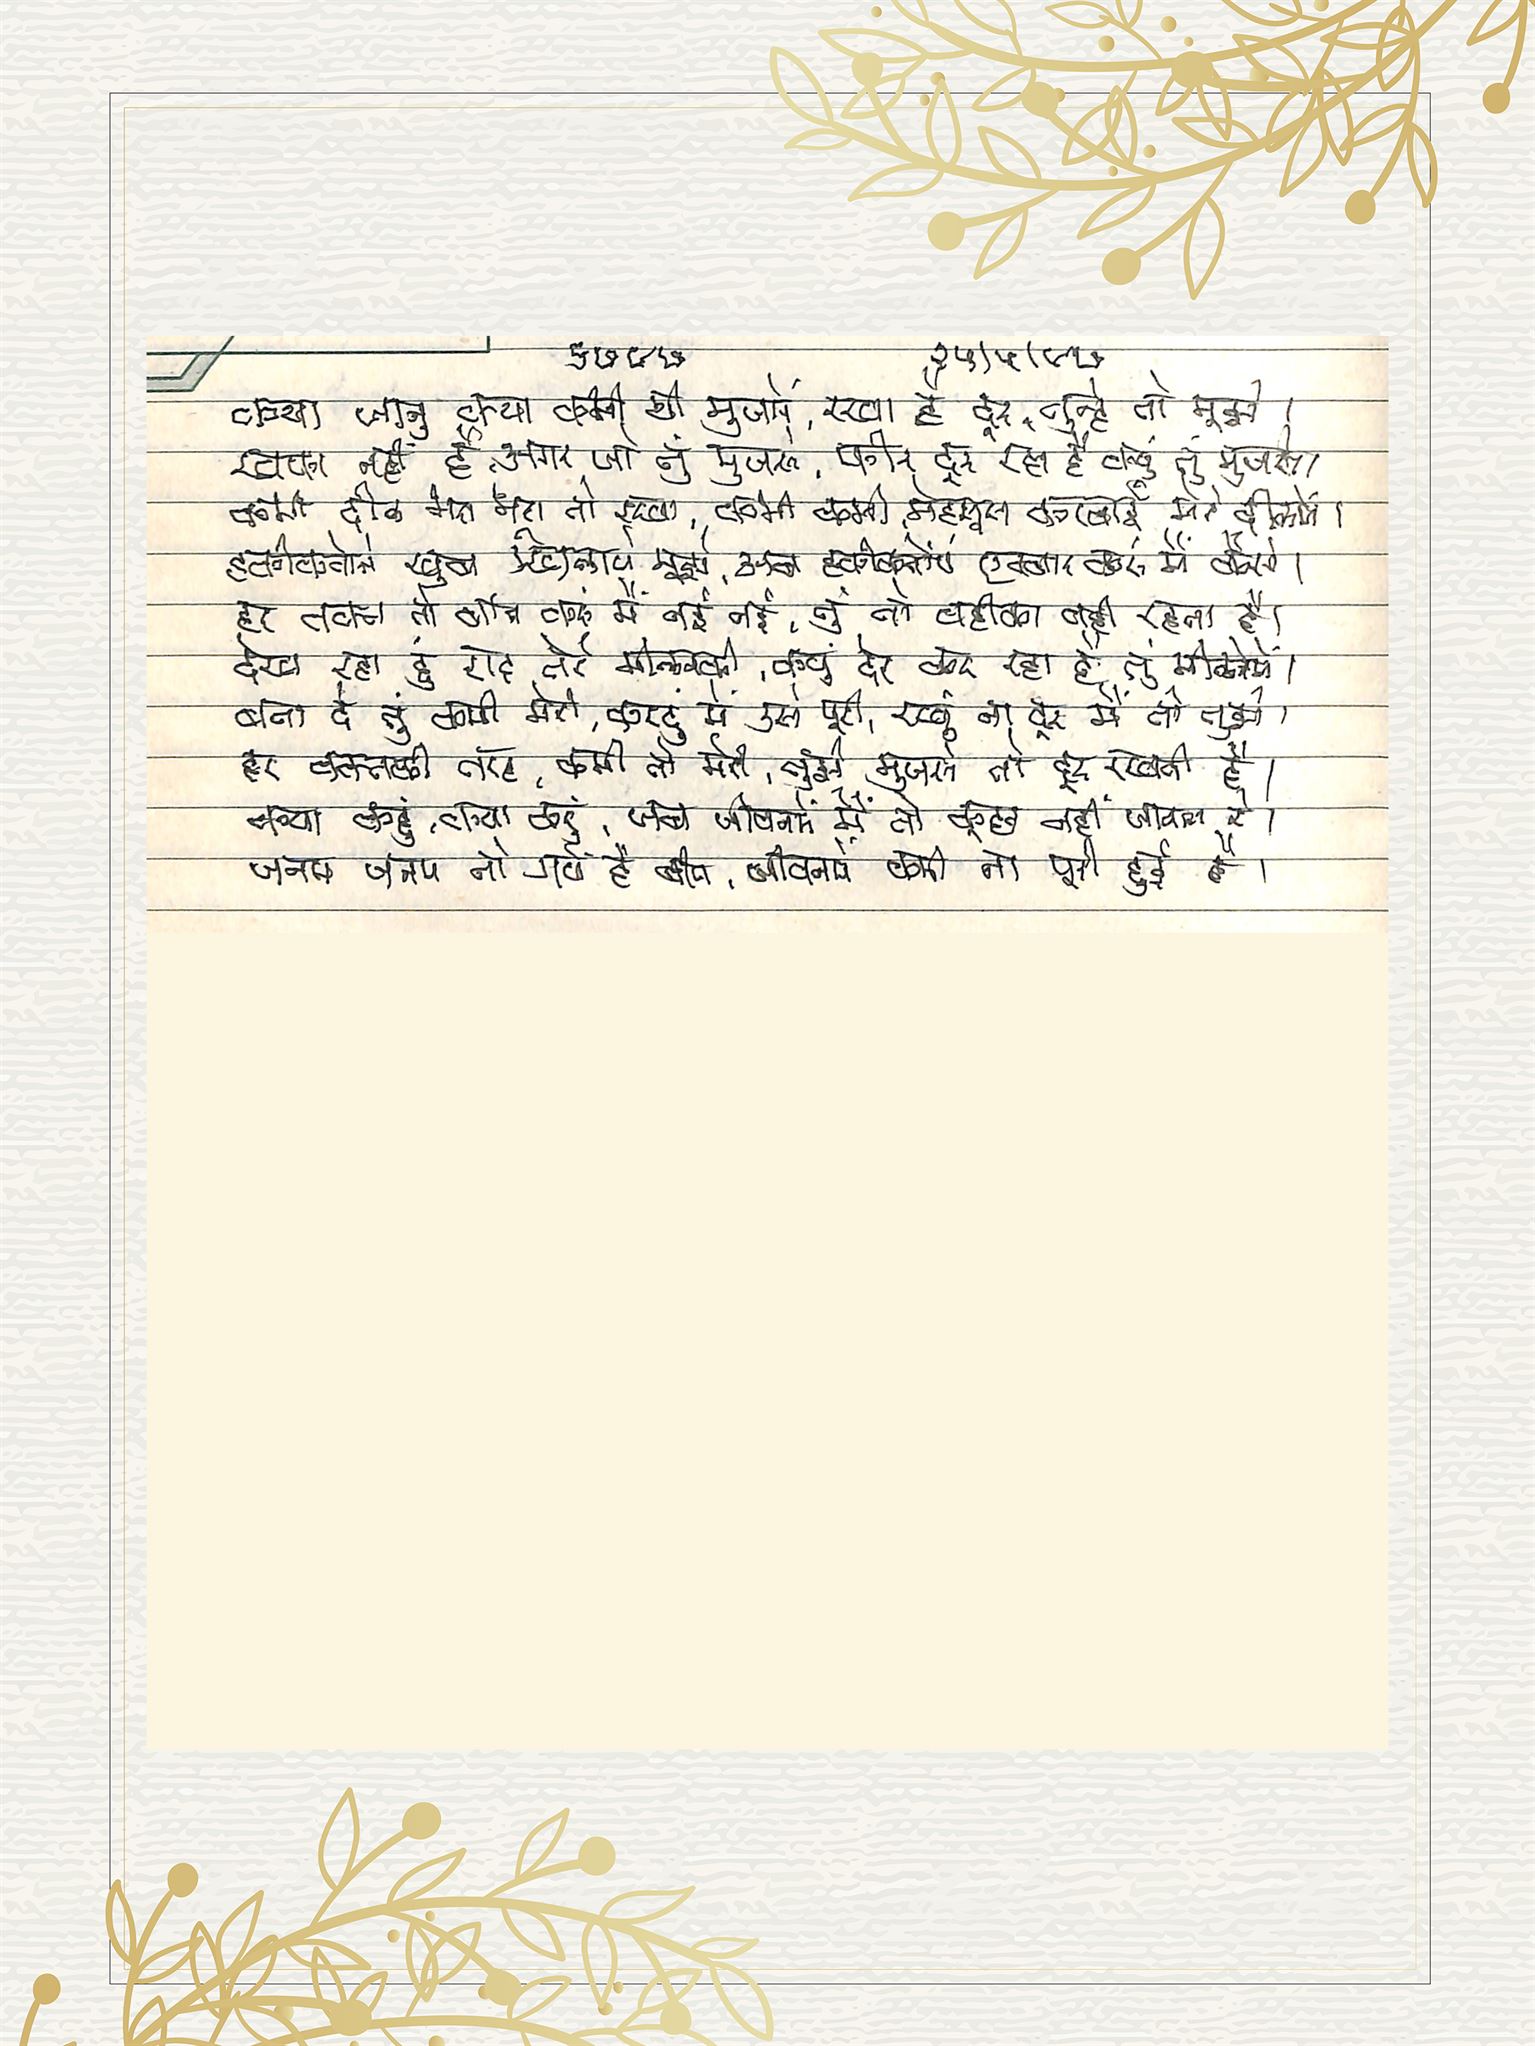 ५७८७ २५/५/८७
क्या जानु क्या कमी थी मुजमें, रखा है दूर, तुन्हे तो मुझे ।
खफा नहीं है, अगर जो तुं मुजसे, फीर दूर रहा है क्युं तुं मुजसे।
कभी दील मेरा मेरा तो रखा, कभी कभी, महेसूस करवाई मेरे दीलमें ।
हकीकतोने खुब मुझे, अब हकीकतोंपे एतबार करुं मैं कैसे ।
हर वक्त तो बात करुं मैं नई नई, तुं तो वहीका वही रहता है।
देख रहा हुं राह तेरे मीलनकी, क्युं देर कर रहा है तुं मीलनेमें।
बता दे तुं कमी मेरी, करदुं मैं उसे पूरी, रखुं ना दूर मैं तो तुझे ।
हर वक्तकी तरह, कमी तो मेरी, तुझे, मुजसे तो दूर रखती है ।
क्या कहुं, क्या करुं, जब जीवनमें मैं तो कुछ नहीं जानता रे ।
जनम जनम तो गये है बीत, जीवनमें कमी ना पूरी हुई है ।